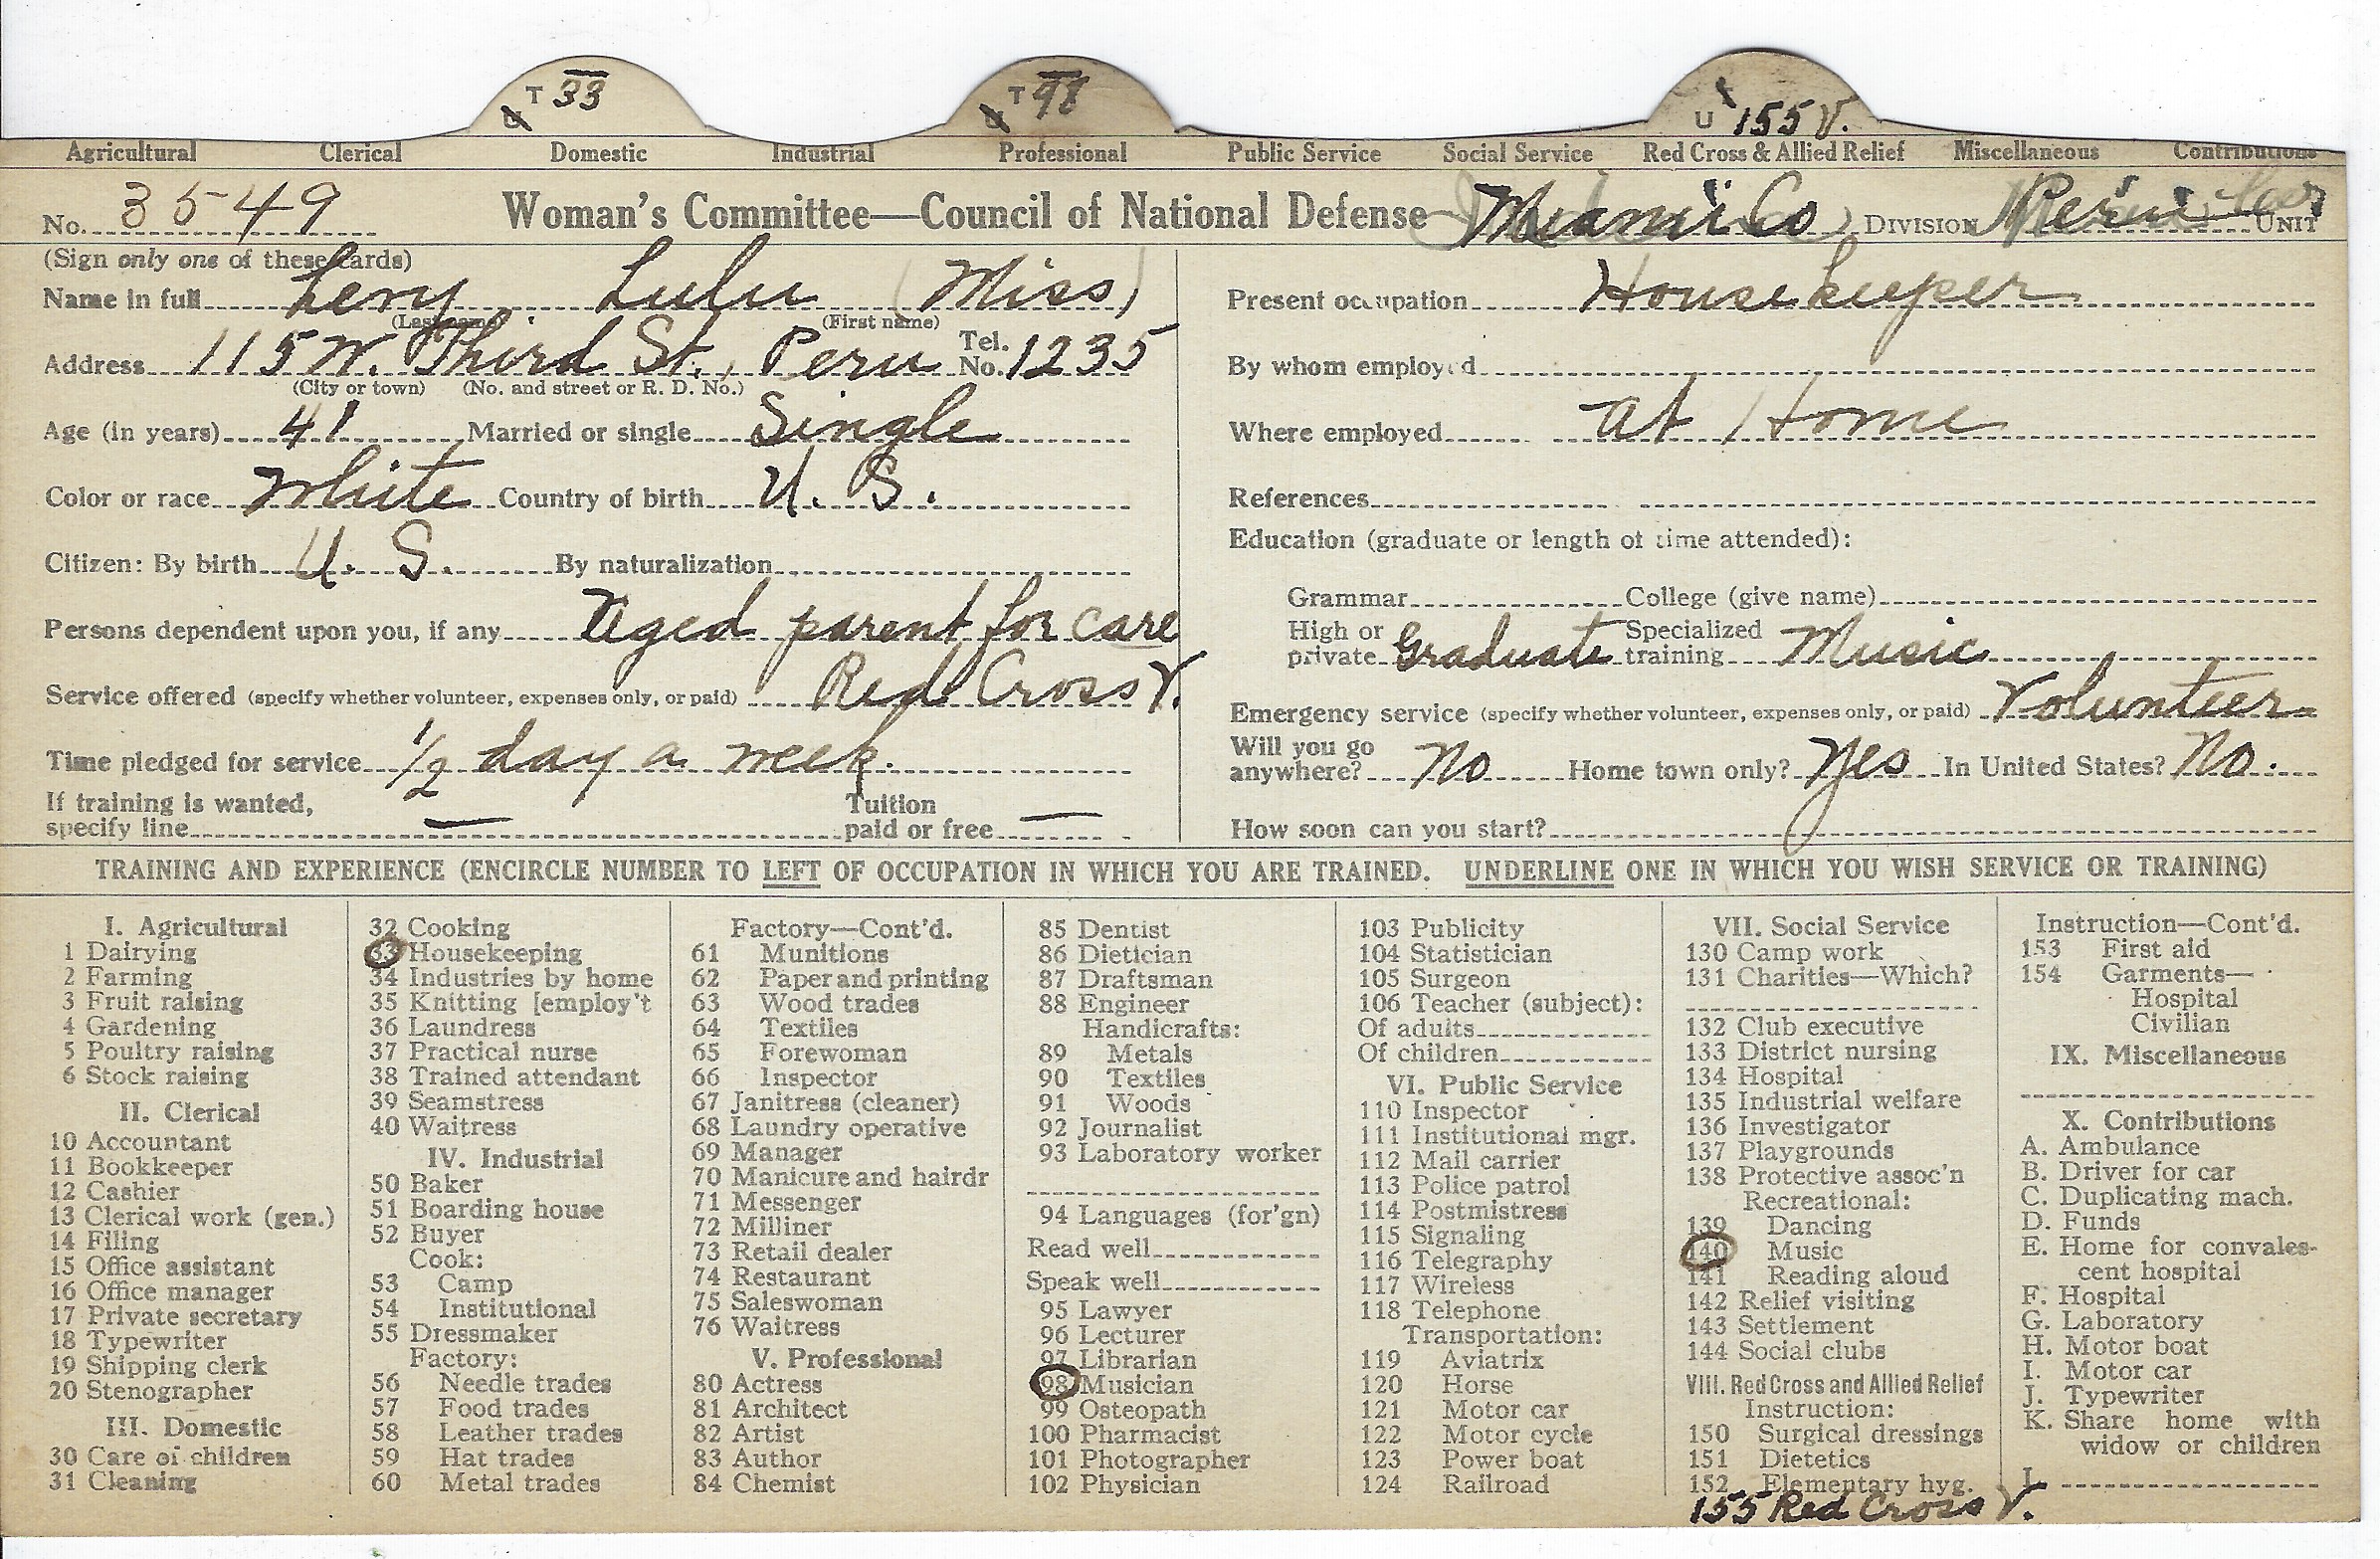 T 33 T 98 U 155 V.
Agricultural Clerical Domestic Industrial Professional Public Service Social Service Red Cross & Allied Relief Miscellaneous Contributions
No. 3549 Woman's Committee—Council of National Defense Miami Co DIVISION Peru UNIT
(Sign only one of these cards)
Name in full Levy Lulu (Miss)
(Last name) (First name)
Address 115 W. Third St., Peru Tel. No. 1235
(City or town) (No. and street or R. D. No.)
Age (in years) 41 Married or single Single
Color or race White Country of birth U. S.
Citizen: By birth U. S. By naturalization
Persons dependent upon you, if any Aged parent for care
Service offered (specify whether volunteer, expenses only, or paid) Red Cross V.
Time pledged for service 1/2 day a week.
If training is wanted,
specify line — Tuition paid or free —
Present occupation Housekeeper
By whom employed
Where employed at Home
References
Education (graduate or length of time attended):
Grammar College (give name)
High or private Graduate Specialized training Music
Emergency service (specify whether volunteer, expenses only, or paid) Volunteer
Will you go anywhere? No Home town only? Yes In United States? No.
How soon can you start?
TRAINING AND EXPERIENCE (ENCIRCLE NUMBER TO LEFT OF OCCUPATION IN WHICH YOU ARE TRAINED. UNDERLINE ONE IN WHICH YOU WISH SERVICE OR TRAINING)
I. Agricultural
1 Dairying
2 Farming
3 Fruit raising
4 Gardening
5 Poultry raising
6 Stock raising
II. Clerical
10 Accountant
11 Bookkeeper
12 Cashier
13 Clerical work (gen.)
14 Filing
15 Office assistant
16 Office manager
17 Private secretary
18 Typewriter
19 Shipping clerk
20 Stenographer
III. Domestic
30 Care of children
31 Cleaning
32 Cooking
33 Housekeeping
34 Industries by home
35 Knitting [employ't
36 Laundress
37 Practical nurse
38 Trained attendant
39 Seamstress
40 Waitress
IV. Industrial
50 Baker
51 Boarding house
52 Buyer
Cook:
53 Camp
54 Institutional
55 Dressmaker
Factory:
56 Needle trades
57 Food trades
58 Leather trades
59 Hat trades
60 Metal trades
Factory—Cont'd.
61 Munitions
62 Paper and printing
63 Wood trades
64 Textiles
65 Forewoman
66 Inspector
67 Janitress (cleaner)
68 Laundry operative
69 Manager
70 Manicure and hairdr
71 Messenger
72 Milliner
73 Retail dealer
74 Restaurant
75 Saleswoman
76 Waitress
V. Professional
80 Actress
81 Architect
82 Artist
83 Author
84 Chemist
85 Dentist
86 Dietician
87 Draftsman
88 Engineer
Handicrafts:
89 Metals
90 Textiles
91 Woods
92 Journalist
93 Laboratory worker
94 Languages (for'gn)
Read well
Speak well
95 Lawyer
96 Lecturer
97 Librarian
98 Musician
99 Osteopath
100 Pharmacist
101 Photographer
102 Physician
103 Publicity
104 Statistician
105 Surgeon
106 Teacher (subject):
Of adults
Of children
VI. Public Service
110 Inspector
111 Institutional mgr.
112 Mail carrier
113 Police patrol
114 Postmistress
115 Signaling
116 Telegraphy
117 Wireless
118 Telephone
Transportation:
119 Aviatrix
120 Horse
121 Motor car
122 Motor cycle
123 Power boat
124 Railroad
VII. Social Service
130 Camp work
131 Charities—Which?
132 Club executive
133 District nursing
134 Hospital
135 Industrial welfare
136 Investigator
137 Playgrounds
138 Protective assoc'n
Recreational:
139 Dancing
140 Music
141 Reading aloud
142 Relief visiting
143 Settlement
144 Social clubs
VIII. Red Cross and Allied Relief
Instruction:
150 Surgical dressings
151 Dietetics
152 Elementary hyg.
155 Red Cross V.
Instruction—Cont'd.
153 First aid
154 Garments—
Hospital
Civilian
IX. Miscellaneous
X. Contributions
A. Ambulance
B. Driver for car
C. Duplicating mach.
D. Funds
E. Home for convales-
cent hospital
F. Hospital
G. Laboratory
H. Motor boat
I. Motor car
J. Typewriter
K. Share home with
widow or children
L.